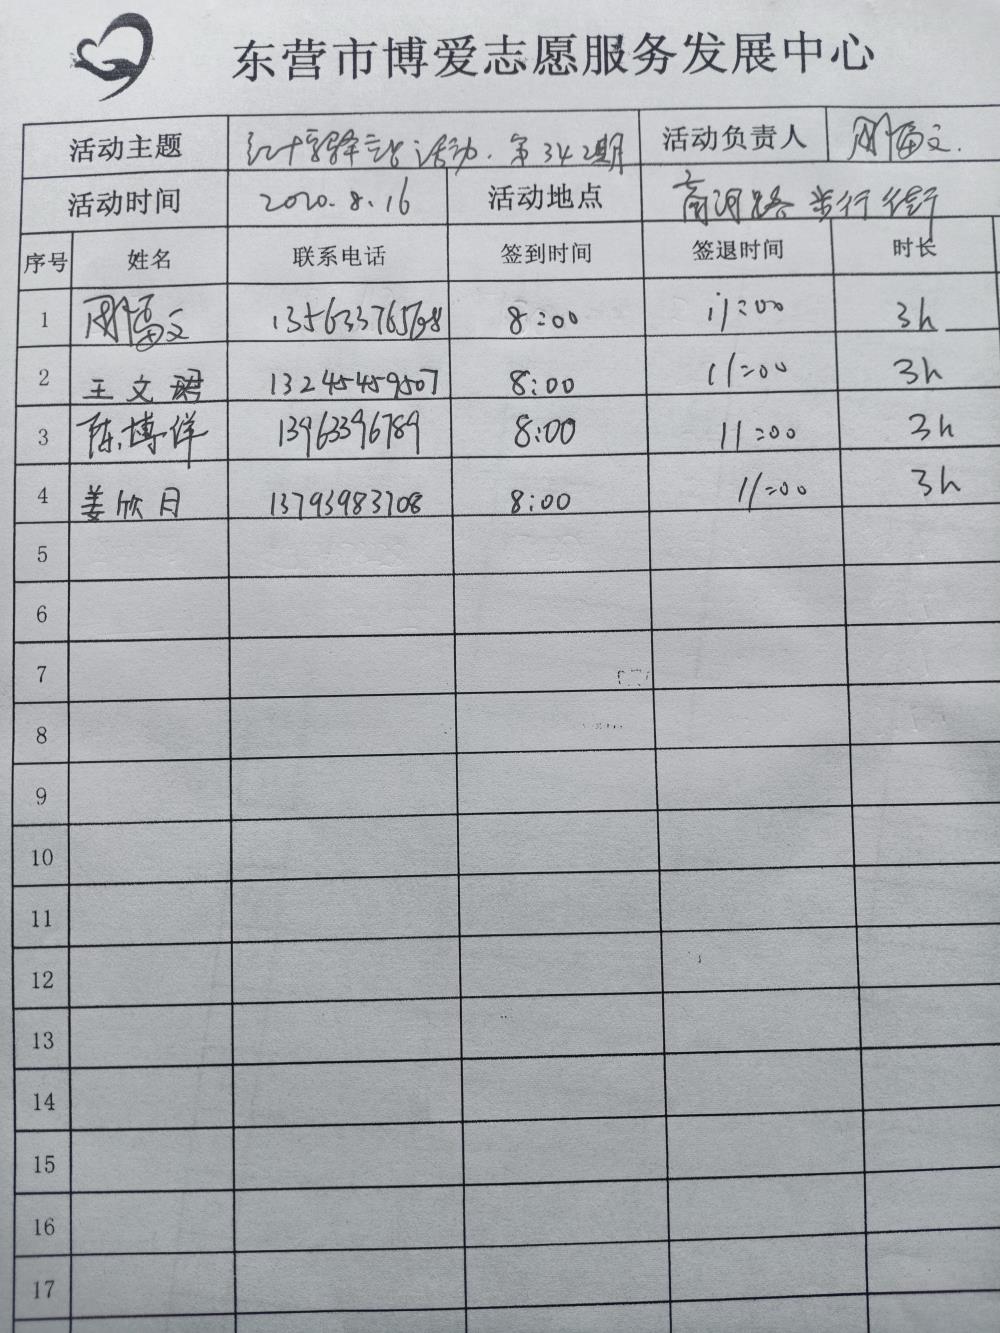 东营市博爱志愿服务发展中心
活动主题 红十字驿站活动.第342期 活动负责人 周福文.
活动时间 2020.8.16 活动地点 商河路步行街
序号 姓名 联系电话 签到时间 签退时间 时长
1 周福文 13563376568 8:00 11:00 3h
2 王文珺 13245459507 8:00 11:00 3h
3 陈博洋 13963396789 8:00 11:00 3h
4 姜欣月 13793983708 8:00 11:00 3h
5
6
7
8
9
10
11
12
13
14
15
16
17